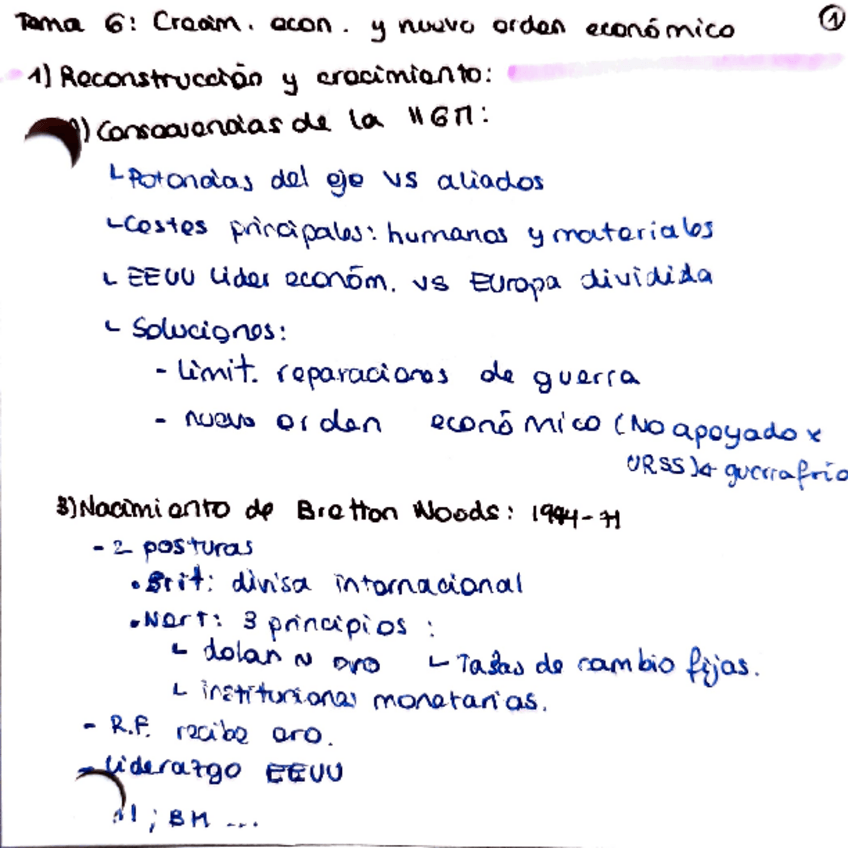 Tema 6: Crecim. econ. y nuevo orden económico ①
1) Reconstrucción y crecimiento:
) Consecuencias de la IIGM:
└ Potencias del eje VS aliados
└ Costes principales: humanos y materiales
└ EEUU lider económ. vs Europa dividida
└ Soluciones:
- limit. reparaciones de guerra
- nuevo orden económico (No apoyado x
URSS) guerra fría
3) Nacimiento de Bretton Woods: 1944-71
- 2 posturas
• Brit: divisa internacional
• Nort: 3 principios:
└ dolar ~ oro └ Tasas de cambio fijas.
└ instituciones monetarias.
- R.F. recibe oro.
- Liderazgo EEUU
; BM ...